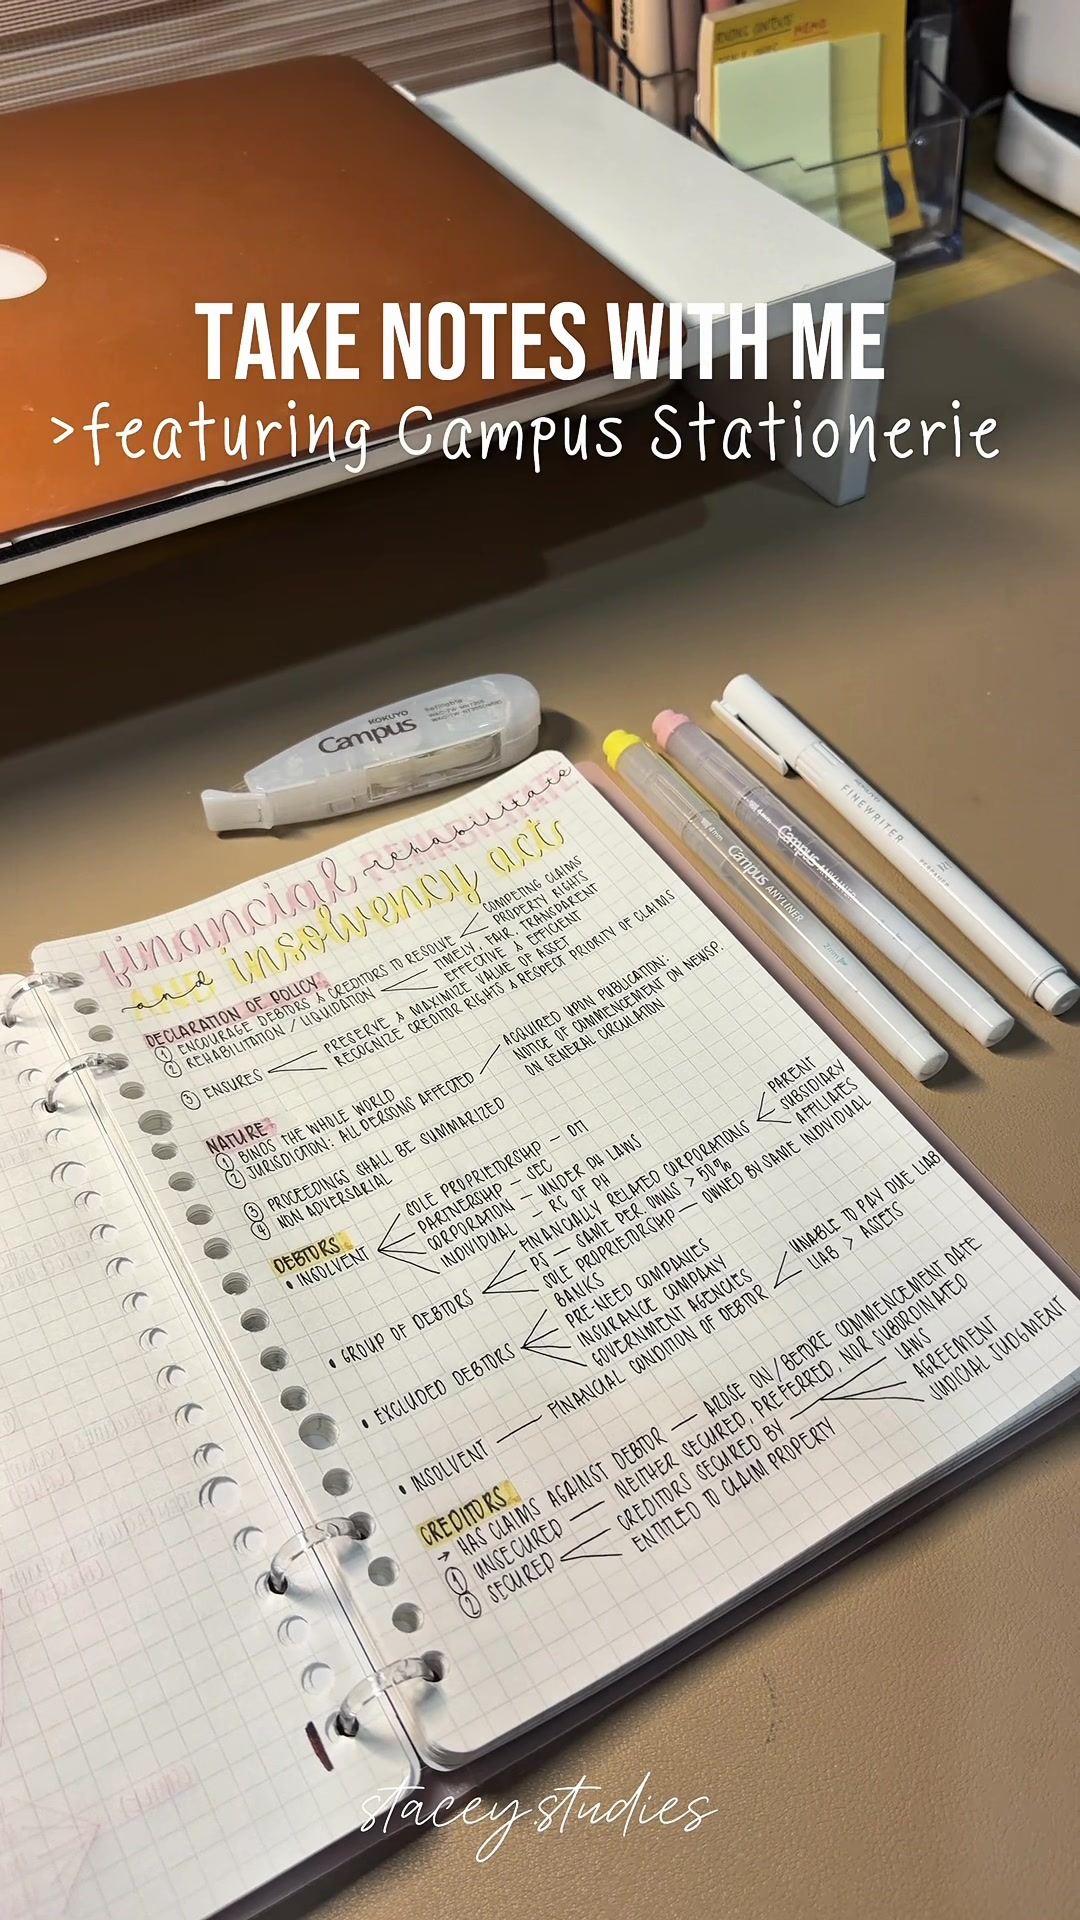 TAKE NOTES WITH ME
>featuring Campus Stationerie
MEMO
KOKUYO
Campus
Campus ANYLINER
Campus ANYLINER
KOKUYO
FINEWRITER
financial rehabilitate
REHABILITATE
and insolvency acts
AND
DECLARATION OF POLICY
① ENCOURAGE DEBTORS & CREDITORS TO RESOLVE
COMPETING CLAIMS
PROPERTY RIGHTS
② REHABILITATION / LIQUIDATION
TIMELY, FAIR, TRANSPARENT
EFFECTIVE & EFFICIENT
③ ENSURES
PRESERVE & MAXIMIZE VALUE OF ASSET
RECOGNIZE CREDITOR RIGHTS & RESPECT PRIORITY OF CLAIMS
NATURE
① BINDS THE WHOLE WORLD
② JURISDICTION: ALL PERSONS AFFECTED
ACQUIRED UPON PUBLICATION:
NOTICE OF COMMENCEMENT ON NEWSP.
ON GENERAL CIRCULATION
③ PROCEEDINGS SHALL BE SUMMARIZED
④ NON ADVERSARIAL
DEBTORS
• INSOLVENT
SOLE PROPRIETORSHIP - DTI
PARTNERSHIP - SEC
CORPORATION - UNDER PH LAWS
INDIVIDUAL - RC OF PH
• GROUP OF DEBTORS
FINANCIALLY RELATED CORPORATIONS
PARENT
SUBSIDIARY
AFFILIATES
PS - SAME PER. OWNS > 50%
SOLE PROPRIETORSHIP - OWNED BY SAME INDIVIDUAL
• EXCLUDED DEBTORS
BANKS
PRE-NEED COMPANIES
INSURANCE COMPANY
GOVERNMENT AGENCIES
• INSOLVENT - FINANCIAL CONDITION OF DEBTOR
UNABLE TO PAY DUE LIAB
LIAB > ASSETS
CREDITORS
→ HAS CLAIMS AGAINST DEBTOR - AROSE ON/BEFORE COMMENCEMENT DATE
① UNSECURED - NEITHER SECURED, PREFERRED, NOR SUBORDINATED
② SECURED
CREDITORS SECURED BY
LAWS
AGREEMENT
JUDICIAL JUDGMENT
ENTITLED TO CLAIM PROPERTY
stacey.studies